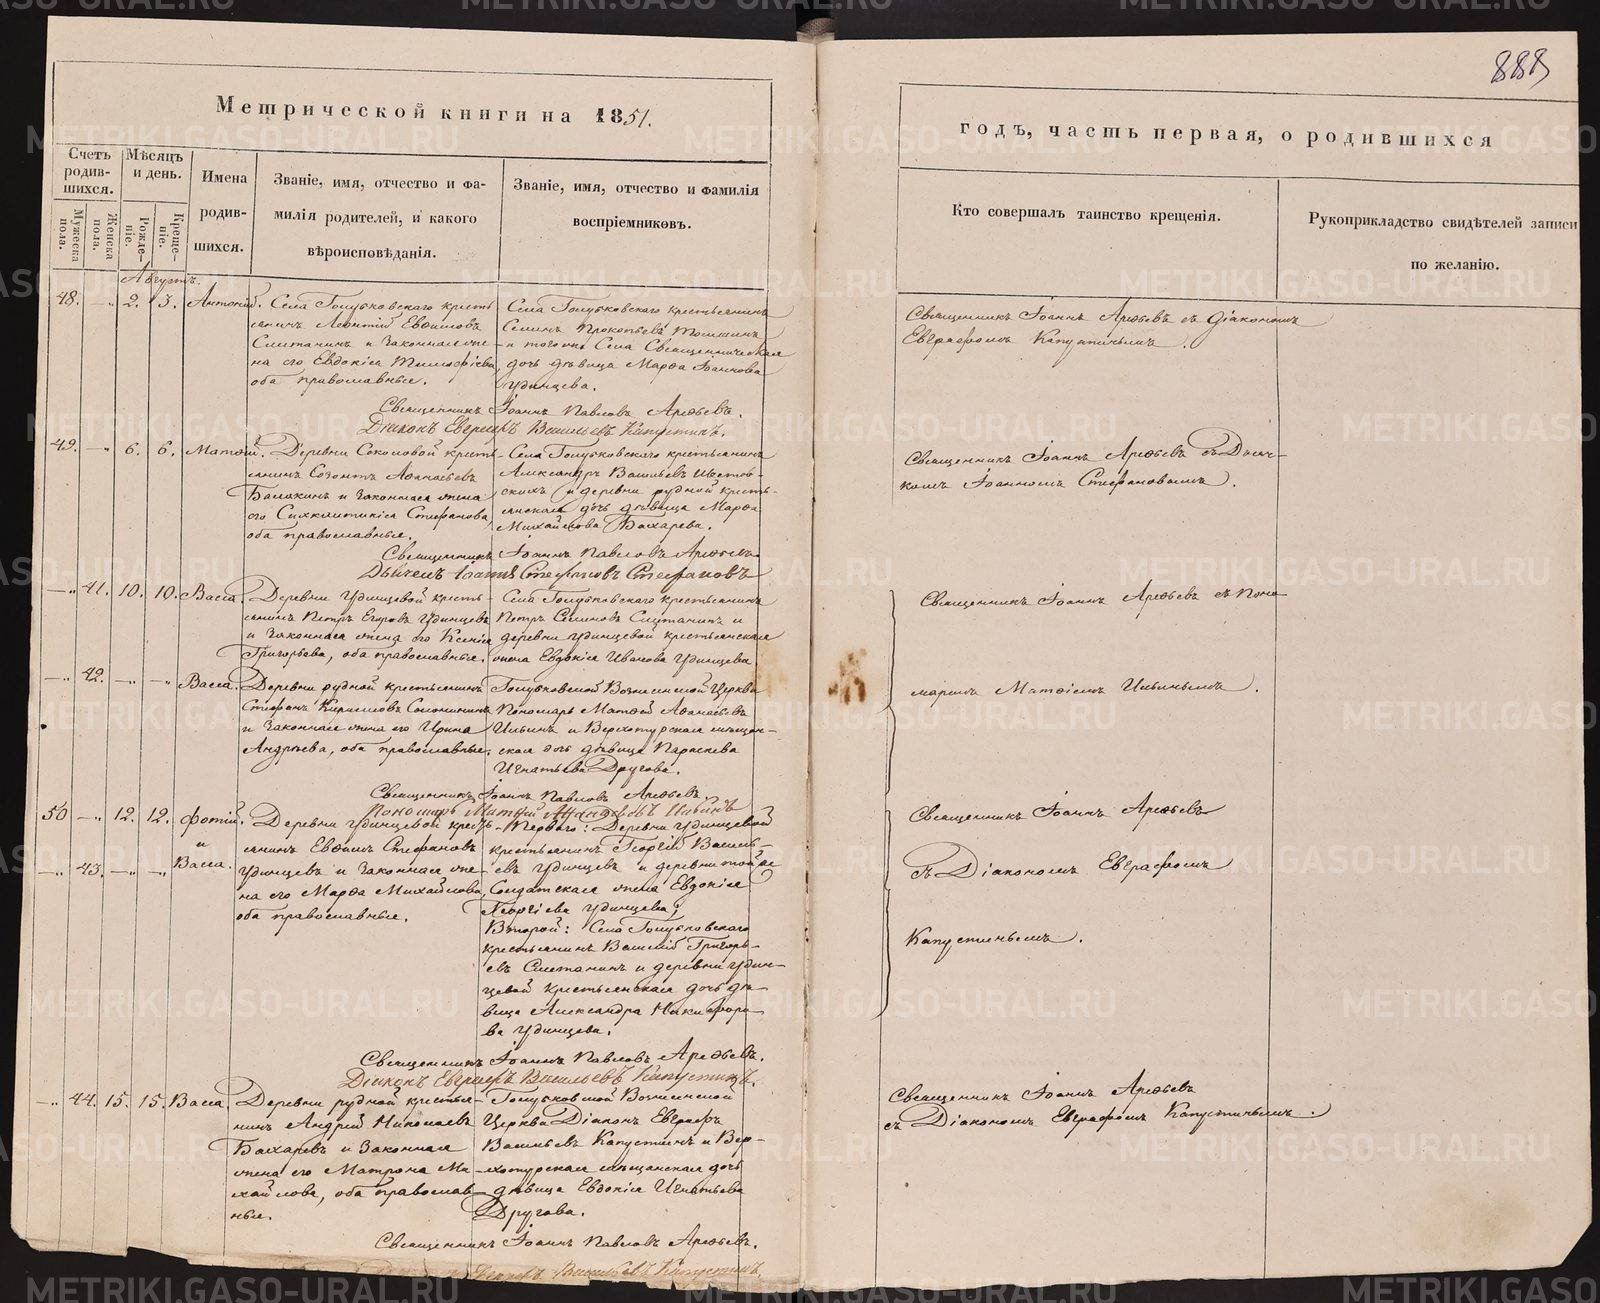 888
Метрической книги на 1851.
годъ, часть первая, о родившихся
Счетъ родив-шихся.
Мѣсяцъ и день.
Имена родив-шихся.
Званіе, имя, отчество и фа-
милія родителей, и какого
вѣроисповѣданія.
Званіе, имя, отчество и фамилія
воспріемниковъ.
Кто совершалъ таинство крещенія.
Рукоприкладство свидѣтелей записи
по желанію.
Мужеска пола.
Женска пола.
Рожде-ніе.
Креще-ніе.
Августъ.
48. — 2. 3. Антоній.
Села Голубковскаго кресть
янинъ Леонтій Евѳимовъ
Сметанинъ и законная же-
на его Евдокія Тимоѳіева,
оба православные.
Села Голубковскаго крестьянинъ
Семенъ Прокопьевъ
и того же Села Священническая
дочь дѣвица Марѳа Іоаннова
Удинцева.
Священникъ Іоаннъ Арефьевъ съ Діакономъ
Евграфомъ Капустинымъ.
Священникъ Іоаннъ Павловъ Арефьевъ.
Діаконъ Евграфъ Васильевъ Капустинъ.
49. — 6. 6. Матѳій.
Деревни Соколовой кресть-
янинъ Созонтъ Аѳанасьевъ
и законная жена
его Синклитикія Стефанова,
оба православные.
Села Голубковскаго крестьянинъ
Александръ Васильевъ
и деревни рудной кресть-
янская дочь дѣвица Марѳа
Михайлова Бахарева.
Священникъ Іоаннъ Арефьевъ съ Дьяч-
комъ Іоанномъ Стефановымъ.
Священникъ Іоаннъ Павловъ Арефьевъ
Дьячекъ Іоаннъ Стефановъ Стефановъ
— 41. 10. 10. Васса.
Деревни Удинцевой кресть-
янинъ Петръ Егоровъ Удинцевъ
и законная жена его Ксенія
Григорьева, оба православные.
Села Голубковскаго крестьянинъ
Петръ Семеновъ Сметанинъ и
деревни Удинцевой крестьянская
жена Евдокія Иванова Удинцева.
Священникъ Іоаннъ Арефьевъ съ Поно-
маремъ Матѳіемъ Ильинымъ.
— 42. — — Васса.
Деревни рудной крестьянинъ
Стефанъ Кириловъ Соломинъ
и законная жена его Ирина
Андрѣева, оба православные.
Голубковской Вознесенской Церкви
Пономарь Матѳій Аѳанасьевъ
Ильинъ и Верхотурская мѣщан-
ская дочь дѣвица Параскева
Игнатьева Другова.
Священникъ Іоаннъ Павловъ Арефьевъ
Пономарь Матѳій Аѳанасьевъ Ильинъ
50 — 12. 12. Фотій
и
— 43. — — Васса.
Деревни Удинцевой кресть-
янинъ Евѳимъ Стефановъ
Удинцевъ и законная же-
на его Марѳа Михайлова,
оба православные.
Перваго: Деревни Удинцевой
крестьянинъ Георгій Василь-
евъ Удинцевъ и деревни той же
Солдатская жена Евдокія
Георгіева Удинцева;
Второй: Села Голубковскаго
крестьянинъ Василій Григорь-
евъ Сметанинъ и деревни Удин-
цевой крестьянская дочь дѣ-
вица Александра Никифоро-
ва Удинцева.
Священникъ Іоаннъ Арефьевъ
съ Діакономъ Евграфомъ
Капустинымъ.
Священникъ Іоаннъ Павловъ Арефьевъ.
Діаконъ Евграфъ Васильевъ Капустинъ.
— 44. 15. 15. Васса.
Деревни рудной крестья-
нинъ Андрей Николаевъ
Бахаревъ и законная
жена его Матрона Ми-
хайлова, оба православ-
ные.
Голубковской Вознесенской
Церкви Діаконъ Евграфъ
Васильевъ Капустинъ и Вер-
хотурская мѣщанская дочь
дѣвица Евдокія Игнатьева
Другова.
Священникъ Іоаннъ Арефьевъ
съ Діакономъ Евграфомъ Капустинымъ.
Священникъ Іоаннъ Павловъ Арефьевъ.
Евграфъ Васильевъ Капустинъ.
METRIKI.GASO-URAL.RU